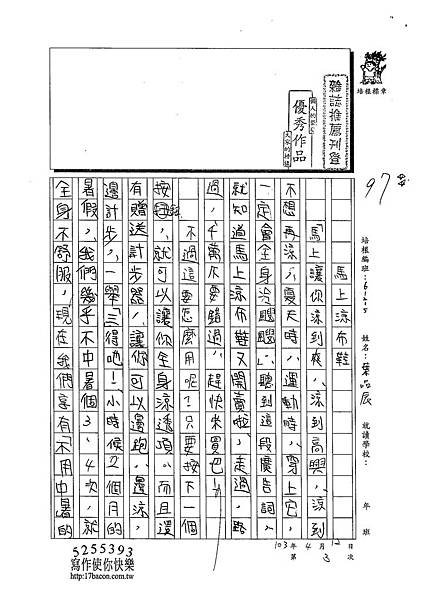 雜誌推薦刊登
個人的榮元
優秀作品
文字的特攝
培根標章
97
培根編班：6125 姓名：葉 辰 就讀學校： 年 班
103年 4月 12日
第 3 次
馬上涼布鞋
「馬上讓你涼到爽，涼到高興，涼到
不想再涼，夏天時，運動時，穿上它，
一定會全身冷颼颼」，聽到這段廣告詞，
就知道馬上涼布鞋又開賣啦，走過，路
過，千萬不要錯過，趕快來買吧！
不過這要怎麼用呢？只要按下一個
按鈕，就可以讓你全身涼透頂。而且還
有贈送計步器，讓你可以邊跑，邊涼，
邊計步，一舉「三得吧！小時候2個月的
暑假，我們幾乎不中暑個3、4次，就
全身不舒服，現在我們享有「不用中暑的
5255393
寫作使你快樂
http://17bacon.com.tw